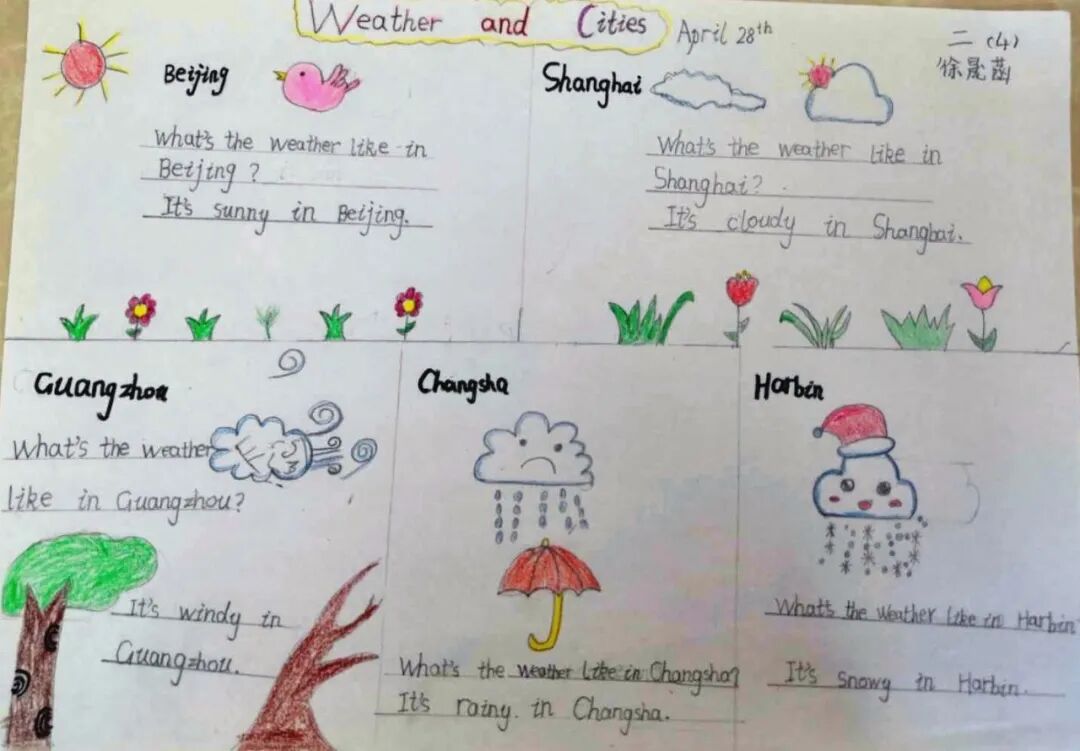 Weather and Cities
April 28th
二（4）
徐晟菡
Beijing
What's the weather like in
Beijing ?
It's sunny in Beijing.
Shanghai
What's the weather like in
Shanghai?
It's cloudy in Shanghai.
Guangzhou
What's the weather
like in Guangzhou?
It's windy in
Guangzhou.
Changsha
What's the weather like in Changsha?
It's rainy. in Changsha.
Harbin
What's the weather like in Harbin
It's snowy in Harbin.